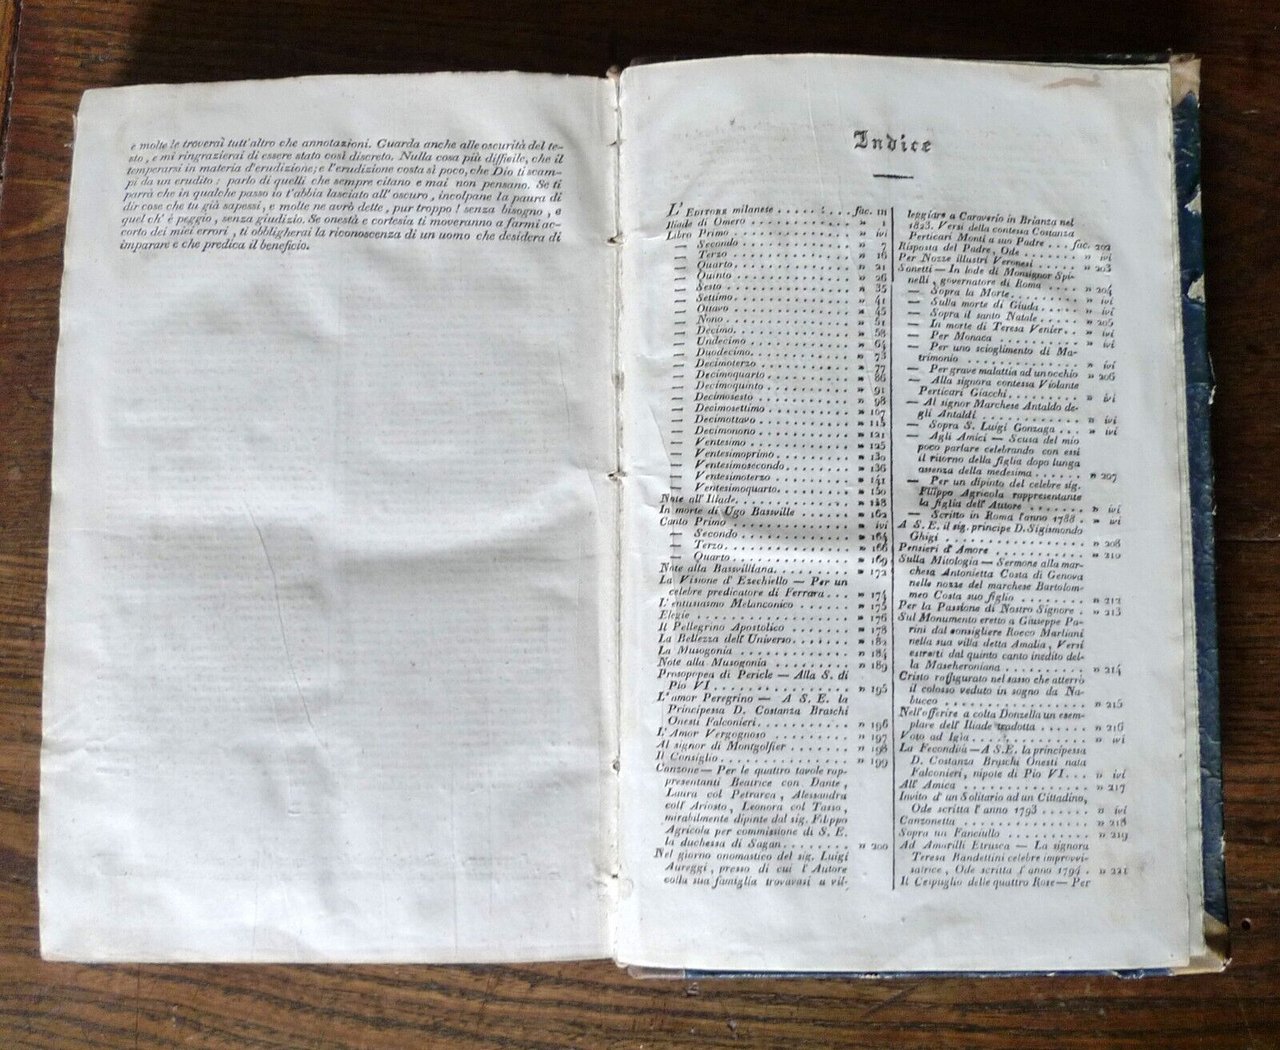 e molte le troverai tutt'altro che annotazioni. Guarda anche alle oscurità del te-
sto, e mi ringrazierai di essere stato così discreto. Nulla cosa più difficile, che il
temperarsi in materia d'erudizione; e l'erudizione costa sì poco, che Dio ti scam-
pi da un erudito: parlo di quelli che sempre citano e mai non pensano. Se ti
parrà che in qualche passo io t'abbia lasciato all'oscuro, incolpane la paura di
dir cose che tu già sapessi, e molte ne avrò dette, pur troppo! senza bisogno, e
quel ch'è peggio, senza giudizio. Se onestà e cortesia ti moveranno a farmi ac-
corto dei miei errori, ti obbligherai la riconoscenza di un uomo che desidera di
imparare e che predica il beneficio.
Indice
L'EDITORE milanese . . . . . fac. III
Iliade di Omero . . . . . » 1
Libro Primo . . . . . » ivi
— Secondo . . . . . » 7
— Terzo . . . . . » 16
— Quarto . . . . . » 21
— Quinto . . . . . » 26
— Sesto . . . . . » 35
— Settimo . . . . . » 41
— Ottavo . . . . . » 45
— Nono . . . . . » 51
— Decimo . . . . . » 58
— Undecimo . . . . . » 64
— Duodecimo . . . . . » 73
— Decimoterzo . . . . . » 77
— Decimoquarto . . . . . » 86
— Decimoquinto . . . . . » 91
— Decimosesto . . . . . » 98
— Decimosettimo . . . . . » 107
— Decimottavo . . . . . » 115
— Decimonono . . . . . » 121
— Ventesimo . . . . . » 125
— Ventesimoprimo . . . . . » 130
— Ventesimosecondo . . . . . » 136
— Ventesimoterzo . . . . . » 141
— Ventesimoquarto . . . . . » 150
Note all'Iliade . . . . . » 158
In morte di Ugo Bassville » 162
Canto Primo . . . . . » ivi
— Secondo . . . . . » 164
— Terzo . . . . . » 166
— Quarto . . . . . » 169
Note alla Bassvilliana . . . . . » 172
La Visione d'Ezechiello — Per un
celebre predicatore di Ferrara . . . » 174
L'entusiasmo Melanconico . . . . . » 175
Elegie . . . . . » 176
Il Pellegrino Apostolico . . . . . » 178
La Bellezza dell'Universo . . . . . » 182
La Musogonia . . . . . » 184
Note alla Musogonia . . . . . » 189
Prosopopea di Pericle — Alla S. di
Pio VI . . . . . » 195
L'amor Peregrino — A S. E. la
Principessa D. Costanza Braschi
Onesti Falconieri . . . . . » 196
L'Amor Vergognoso . . . . . » 197
Al signor di Montgolfier . . . . . » 198
Il Consiglio . . . . . » 199
Canzone — Per le quattro tavole rap-
presentanti Beatrice con Dante,
Laura col Petrarca, Alessandra
coll'Ariosto, Leonora col Tasso,
mirabilmente dipinte dal sig. Filippo
Agricola per commissione di S. E.
la duchessa di Sagan . . . . . » 200
Nel giorno onomastico del sig. Luigi
Aureggi, presso di cui l'Autore
colla sua famiglia trovavasi a vil-
leggiare a Caroverio in Brianza nel
1823. Versi della contessa Costanza
Perticari Monti a suo Padre . . . fac. 202
Risposta del Padre, Ode . . . . . » ivi
Per Nozze illustri Veronesi . . . . . » 203
Sonetti — In lode di Monsignor Spi-
nelli, governatore di Roma . . . . . » 204
— Sopra la Morte . . . . . » ivi
— Sulla morte di Giuda . . . . . » ivi
— Sopra il santo Natale . . . . . » 205
— In morte di Teresa Venier . . » ivi
— Per Monaca . . . . . » ivi
— Per uno scioglimento di Ma-
trimonio . . . . . » ivi
— Per grave malattia ad un occhio » 206
— Alla signora contessa Violante
Perticari Giacchi . . . . . » ivi
— Al signor Marchese Antaldo de-
gli Antaldi . . . . . » ivi
— Sopra S. Luigi Gonzaga . . . » ivi
— Agli Amici — Scusa del mio
poco parlare celebrando con essi
il ritorno della figlia dopo lunga
assenza della medesima . . . . . » 207
— Per un dipinto del celebre sig.
Filippo Agricola rappresentante
la figlia dell'Autore . . . . . » ivi
— Scritto in Roma l'anno 1788 . » ivi
A S. E. il sig. principe D. Sigismondo
Ghigi . . . . . » 208
Pensieri d'Amore . . . . . » 210
Sulla Mitologia — Sermone alla mar-
chesa Antonietta Costa di Genova
nelle nozze del marchese Bartolom-
meo Costa suo figlio . . . . . » 212
Per la Passione di Nostro Signore . » 213
Sul Monumento eretto a Giuseppe Pa-
rini dal consigliere Rocco Marliani
nella sua villa detta Amalia, Versi
estratti dal quinto canto inedito del-
la Mascheroniana . . . . . » 214
Cristo raffigurato nel sasso che atterrò
il colosso veduto in sogno da Na-
bucco . . . . . » 215
Nell'offerire a colta Donzella un esem-
plare dell'Iliade tradotta . . . . . » 216
Voto ad Igia . . . . . » ivi
La Fecondità — A S. E. la principessa
D. Costanza Braschi Onesti nata
Falconieri, nipote di Pio VI . . . » ivi
All'Amica . . . . . » 217
Invito d'un Solitario ad un Cittadino,
Ode scritta l'anno 1793 . . . . . » ivi
Canzonetta . . . . . » 218
Sopra un Fanciullo . . . . . » 219
Ad Amarilli Etrusca — La signora
Teresa Bandettini celebre improvvi-
satrice, Ode scritta l'anno 1794 . » 221
Il Cespuglio delle quattro Rose — Per